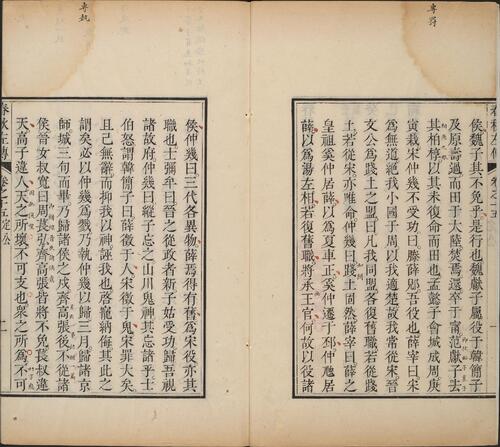 專罰
侯魏子其不免乎是行也魏獻子屬役於韓簡子
及原壽過而田于大陸焚焉還卒于甯范獻子去
其柏椁以其未復命而田也孟懿子會城成周庚
寅栽宋仲幾不受功曰滕薛郳吾役也薛宰曰宋
為無道絶我小國于周以我適楚故我常從宋晉
文公為踐土之盟曰凡我同盟各復舊職若從踐
土若從宋亦唯命仲幾曰踐土固然薛宰曰薛之
皇祖奚仲居薛以為夏車正奚仲遷于邳仲虺居
薛以為湯左相若復舊職將承王官何故以役諸
專執
侯仲幾曰三代各異物薛焉得有舊為宋役亦其
職也士彌牟曰晉之從政者新子姑受功歸吾視
諸故府仲幾曰縱子忘之山川鬼神其忘諸乎士
伯怒謂韓簡子曰薛徵于人宋徵于鬼宋罪大矣
且己無辭而抑我以神誣我也啟寵納侮其此之
謂矣必以仲幾為戮乃執仲幾以歸三月歸諸京
師城三旬而畢乃歸諸侯之戍齊高張後不從諸
侯晉女叔寬曰周萇弘齊高張皆將不免萇叔違
天高子違人天之所壞不可支也衆之所為不可
春秋左傳 卷之十五定公 一